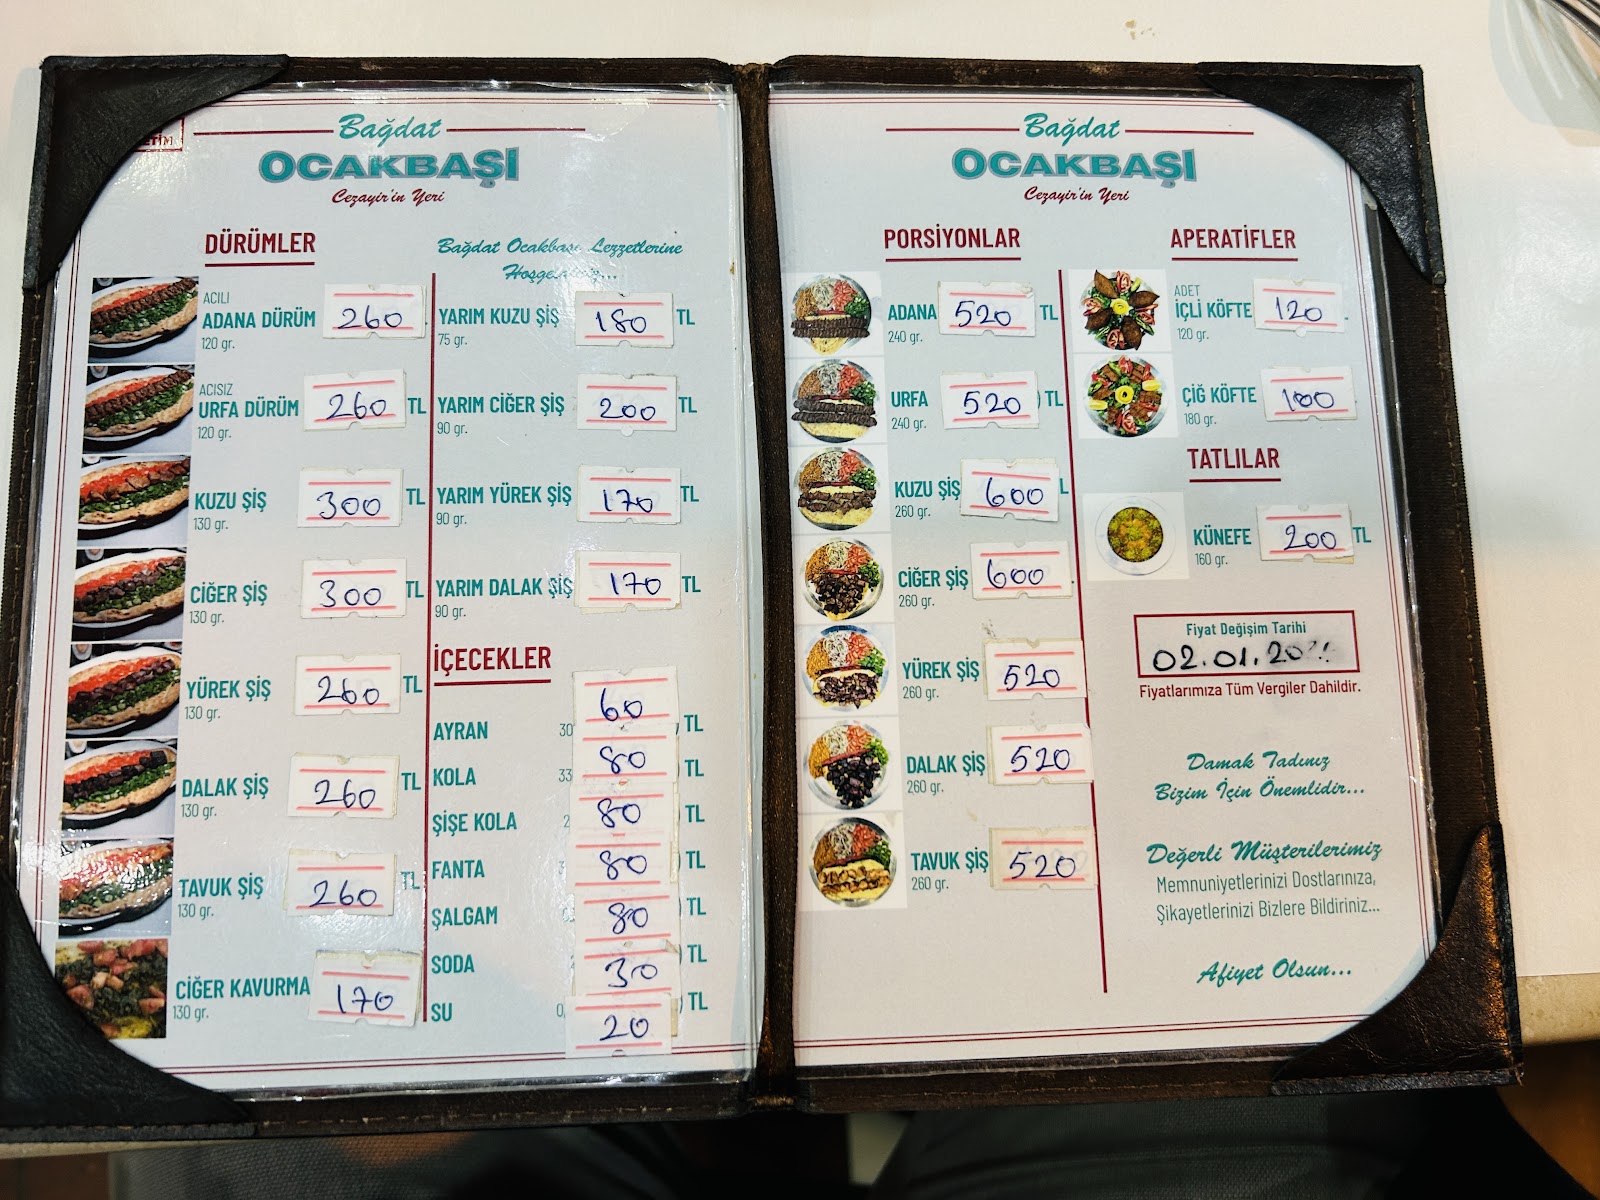 Bağdat
OCAKBAŞI
Cezayir'in Yeri
DÜRÜMLER
ACILI
ADANA DÜRÜM 260
120 gr.
ACISIZ
URFA DÜRÜM 260 TL
120 gr.
KUZU ŞİŞ 300 TL
130 gr.
CİĞER ŞİŞ 300 TL
130 gr.
YÜREK ŞİŞ 260 TL
130 gr.
DALAK ŞİŞ 260 TL
130 gr.
TAVUK ŞİŞ 260 TL
130 gr.
CİĞER KAVURMA 170
130 gr.
Bağdat Ocakbaşı Lezzetlerine
YARIM KUZU ŞİŞ 180 TL
75 gr.
YARIM CİĞER ŞİŞ 200 TL
90 gr.
YARIM YÜREK ŞİŞ 170 TL
90 gr.
YARIM DALAK ŞİŞ 170 TL
90 gr.
İÇECEKLER
AYRAN 60 TL
KOLA 80 TL
ŞİŞE KOLA 80 TL
FANTA 80 TL
ŞALGAM 80 TL
SODA 30 TL
SU 20 TL
Bağdat
OCAKBAŞI
Cezayir'in Yeri
PORSİYONLAR
ADANA 520 TL
240 gr.
URFA 520 TL
240 gr.
KUZU ŞİŞ 600
260 gr.
CİĞER ŞİŞ 600
260 gr.
YÜREK ŞİŞ 520
260 gr.
DALAK ŞİŞ 520
260 gr.
TAVUK ŞİŞ 520
260 gr.
APERATİFLER
ADET
İÇLİ KÖFTE 120
120 gr.
ÇİĞ KÖFTE 100
180 gr.
TATLILAR
KÜNEFE 200 TL
160 gr.
Fiyat Değişim Tarihi
02.01.20
Fiyatlarımıza Tüm Vergiler Dahildir.
Damak Tadınız
Bizim İçin Önemlidir...
Değerli Müşterilerimiz
Memnuniyetlerinizi Dostlarınıza,
Şikayetlerinizi Bizlere Bildiriniz...
Afiyet Olsun...